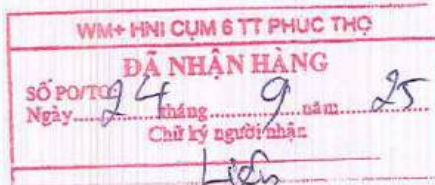 WM+ HNI CỤM 6 TT PHÚC THỌ
ĐÃ NHẬN HÀNG
SỐ PO/TO
Ngày 24 tháng 9 năm 25
Chữ ký người nhận
Liên